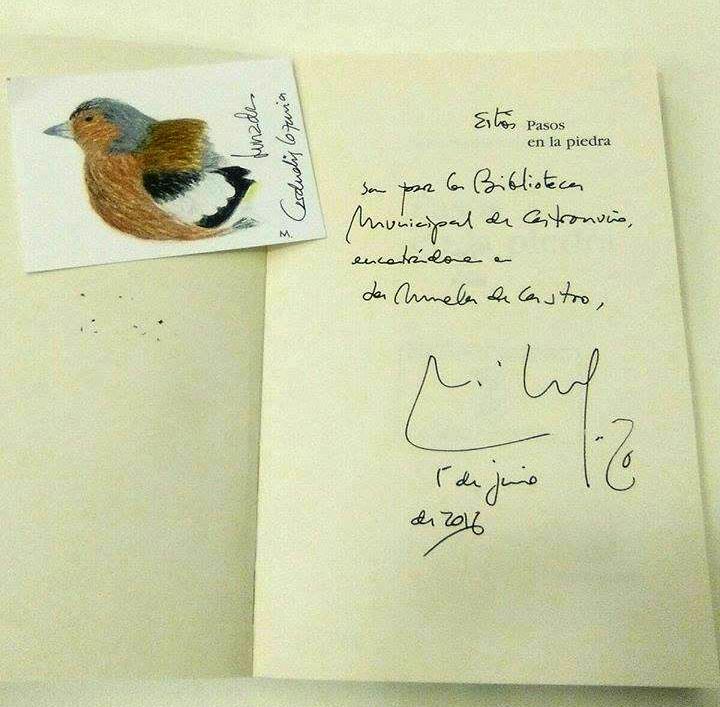 Estos Pasos
en la piedra
son para la Biblioteca
Municipal de Castronuño,
encontrándome en
La Muela de Castro,
5 de junio
de 2016
M.